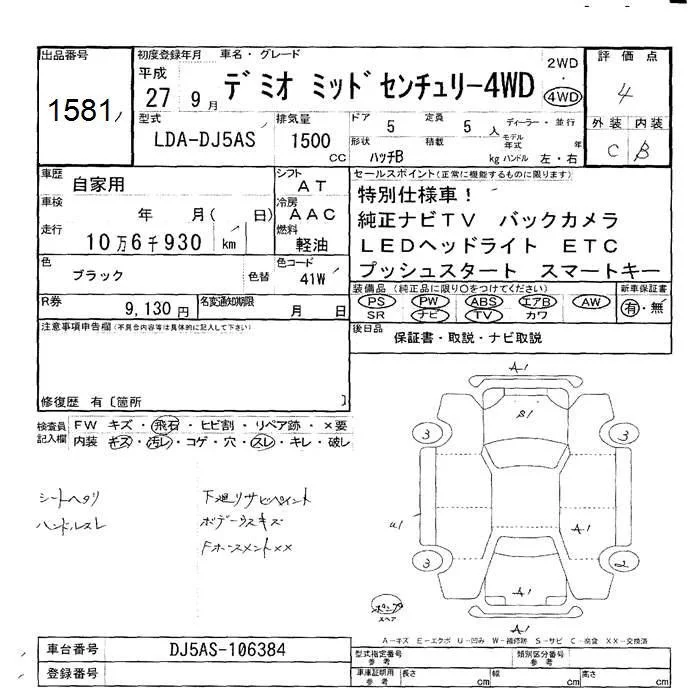 出品番号
1581
初度登録年月 車名・グレード
平成
27 9月
デミオ ミッドセンチュリー4WD
2WD
・
4WD
評価点
4
型式
LDA-DJ5AS
排気量
1500
CC
ドア 5 定員 5 人
形状 ハッチB 積載 kg
ディーラー・並行
モデル年式 年
ハンドル 左・右
外装 内装
C B
車歴 自家用
シフト AT
車検 年 月( 日)
冷房 AAC
走行 10万6千930 km
燃料 軽油
色 ブラック 色替
色コード 41W
セールスポイント(正常に機能するものに限ります)
特別仕様車!
純正ナビTV バックカメラ
LEDヘッドライト ETC
プッシュスタート スマートキー
R券 9,130円
名変通知期限 月 日
装備品(純正品に限り〇をつけてください)
PS PW ABS エアB AW
SR ナビ TV カワ
新車保証書
有・無
注意事項申告欄(不具合内容等は具体的に記入して下さい)
後日品 保証書・取説・ナビ取説
修復歴 有〔箇所 〕
検査員記入欄
FW キズ・飛石・ヒビ割・リペア跡・×要
内装 キズ・汚レ・コゲ・穴・スレ・キレ・破レ
シートヘタリ
ハンドルスレ
下廻リサビペイント
ボデーウスキズ
A1
S1
3
3
U1
A1
3
2
A1
A1
スペア
A-キズ E-エクボ U-凹み W-補修跡 S-サビ C-腐食 XX-交換済
車台番号 DJ5AS-106384
登録番号
型式指定番号 参考
類別区分番号 参考
車庫証明用 参考 長さ cm 幅 cm 高さ cm